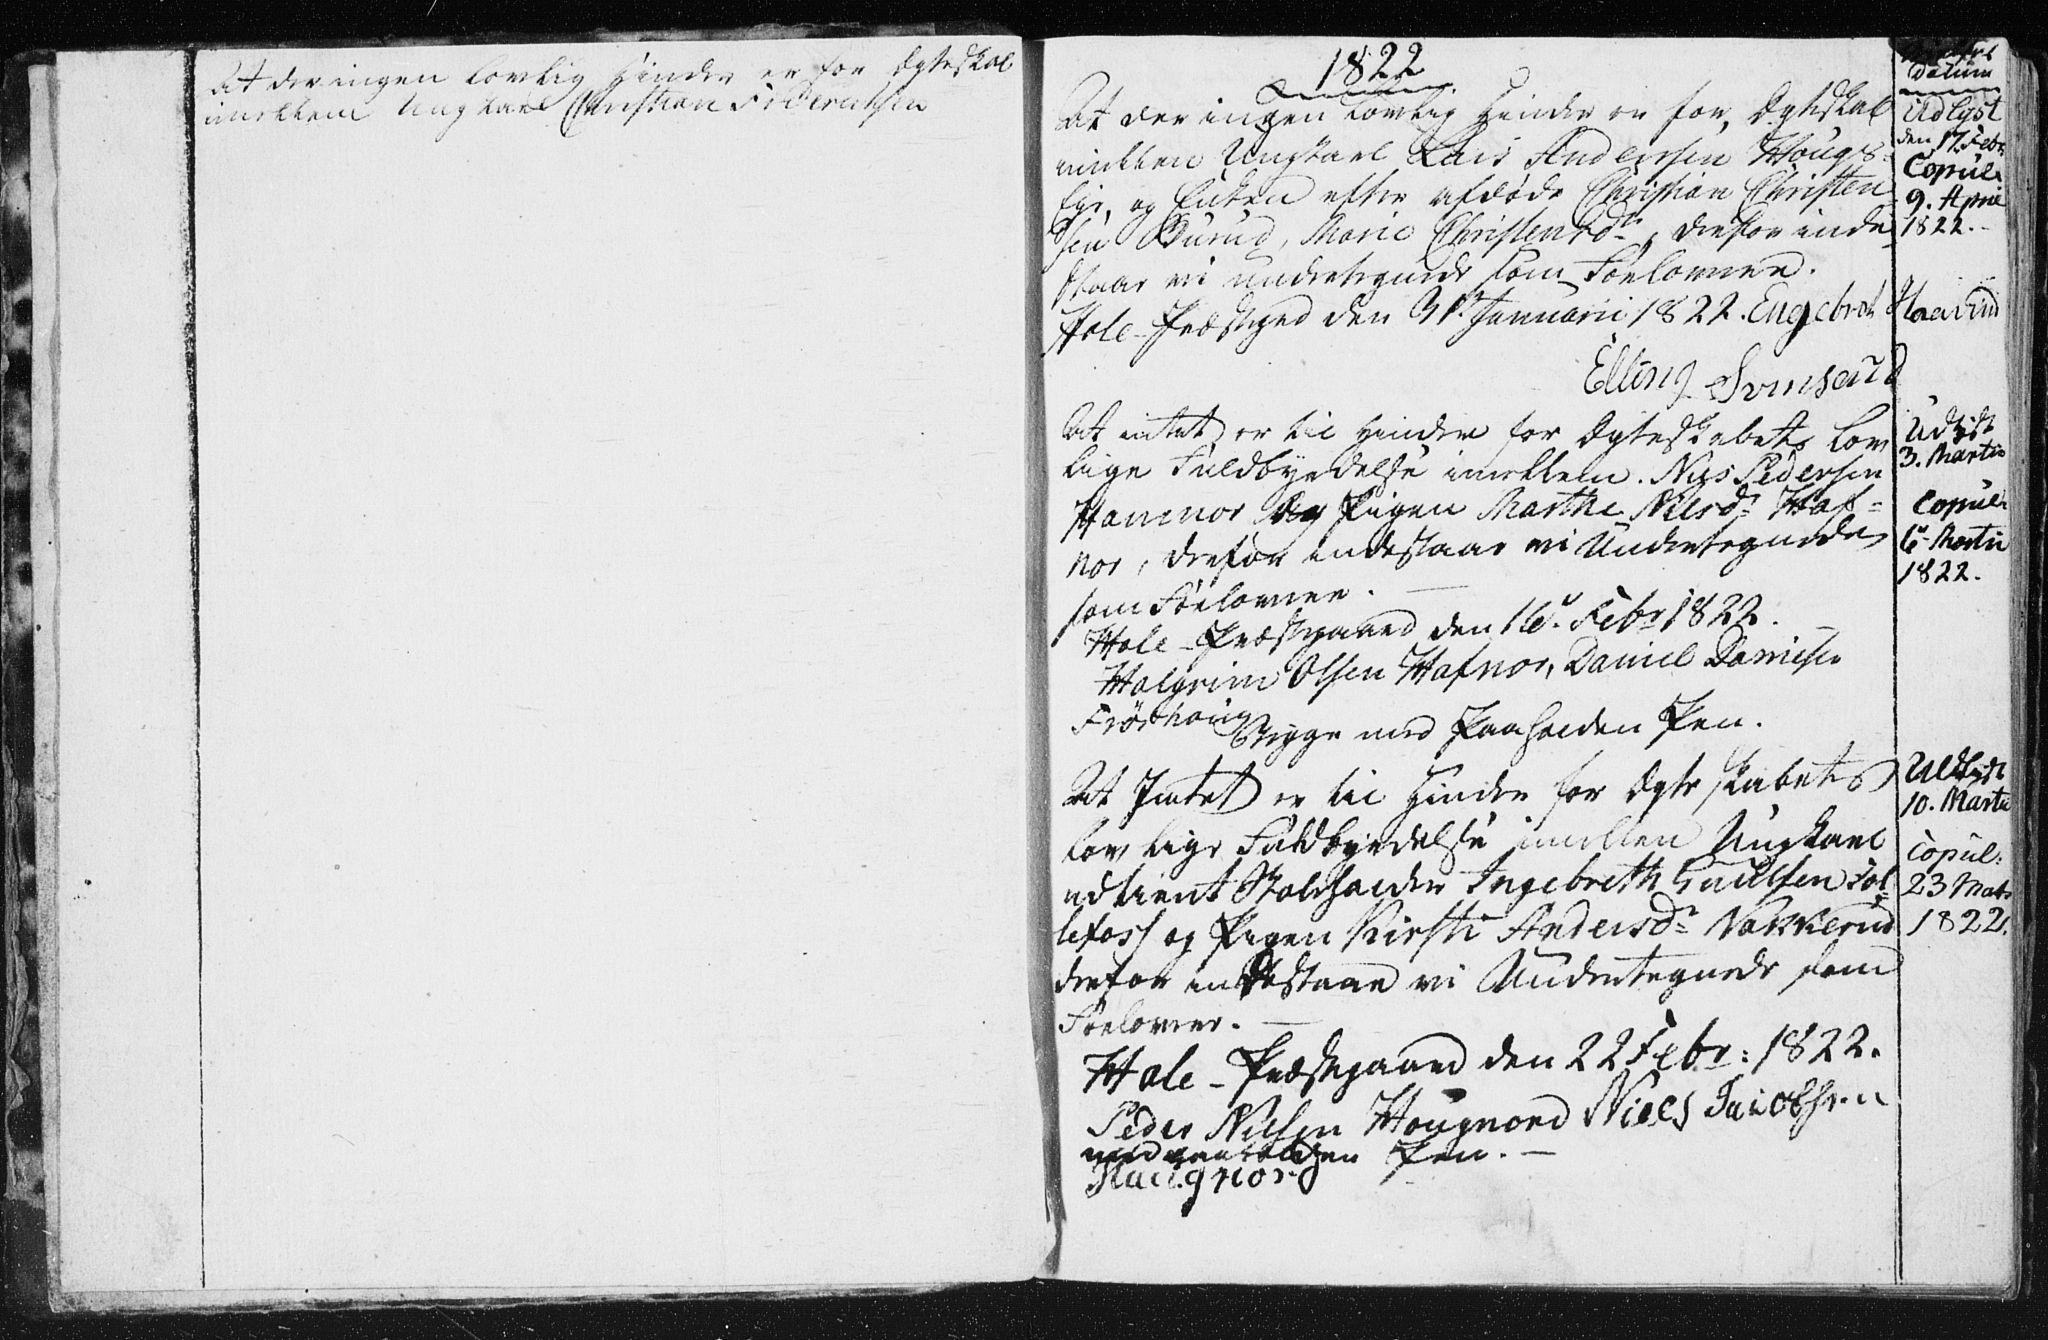 At der ingen lovlig Hinder er for Ægteskab
imellem Ungkarl Christian Friderichsen
1822
At der ingen lovlig Hinder er for Ægteskab
imellem Ungkarl Lars Andersen Hougs-
Eje, og Enken efter afdøde Christian Christen-
sen Burud, Marie Christensdr, derfor inde-
staar vi undertegnede som Forlovere.
Hole-Præstegrd den 31. Januarii 1822. Engebret Haavind
Elling Svinsaas
At intet er til Hinder for Ægteskabets lov-
lige Fuldbyrdelse imellem Nils Pedersen
Hamnor og Pigen Marthe Nilsdr Haf-
nor, derfor indestaar vi Undertegnede
som Forlovere.
Hole-Præstegaard den 16. Febr 1822.
Halgrim Olsen Hafnor, Daniel Danielsen
Frøshoug
Begge med Paaholden Pen.
At Intet er til Hinder for Ægteskabets
lovlige Fuldbyrdelse imellem Ungkarl
udtient Skoleholder Ingebreth Gulbrsen Fol-
lefoss og Pigen Kirsti Andersdr Nakkerud
derfor indestaar vi Undertegnede som
Forlovere.
Hole-Præstegaard den 22 Febr: 1822.
Peder Nilsen Hougnord Niels Jacobsen
med paaholden Pen.
Haugnor
Datum
Udlyst
den 17. Febr
Copul.
9. April
1822.
Udlyst
3. Martii
Copul.
6. Martii
1822.
Udlyst
10. Martii
Copul:
23 Mart.
1822.